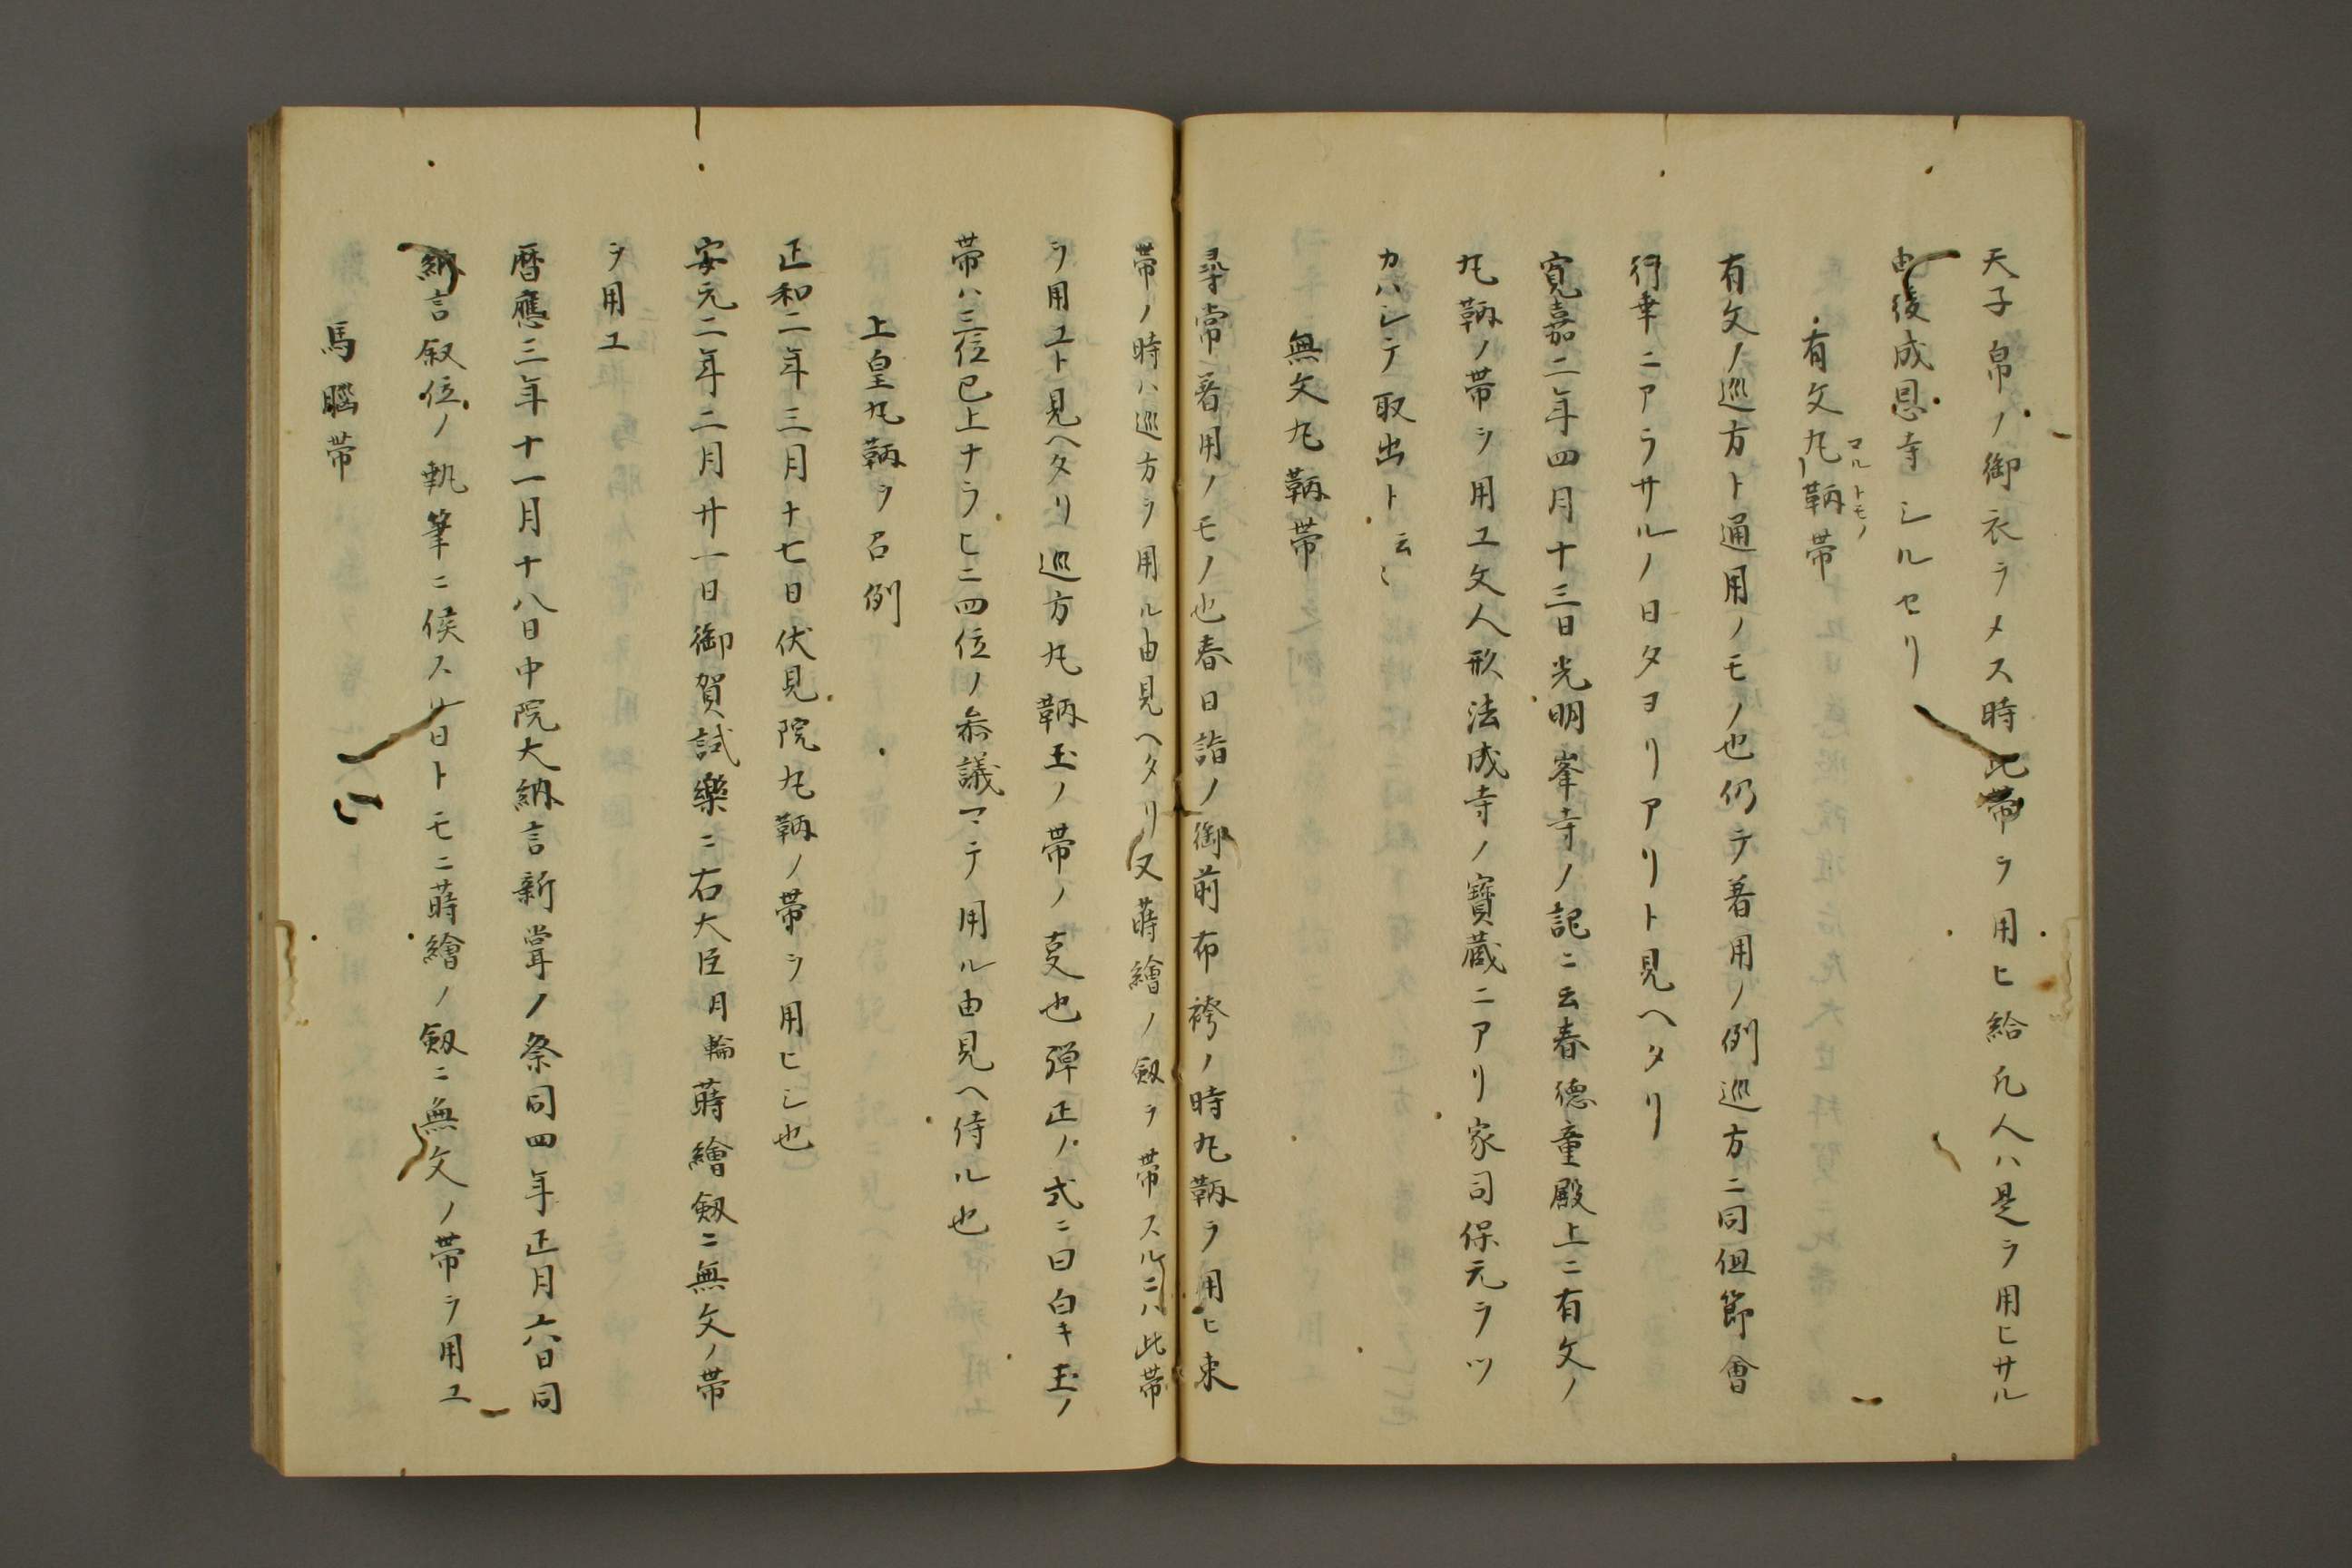 天子帛ノ御衣ヲメス時此帶ヲ用ヒ給凡人ハ是ヲ用ヒサル
由後成恩寺シルセリ
有文丸鞆帶
マルトモノ
有文ノ巡方ト通用ノモノ也仍テ着用ノ例巡方ニ同但節會
行幸ニアラサルノ日タヨリアリト見ヘタリ
寛嘉二年四月十三日光明峯寺ノ記ニ云春德童殿上ニ有文ノ
丸鞆ノ帶ヲ用ユ文人形法成寺ノ寶蔵ニアリ家司保元ヲツ
カハシテ取出ト云〻
無文丸鞆帶
尋常着用ノモノ也春日詣ノ御前布袴ノ時丸鞆ヲ用ヒ束
帶ノ時ハ巡方ヲ用ル由見ヘタリ又蒔繪ノ劔ヲ帶スルニハ此帶
ヲ用ユト見ヘタリ巡方丸鞆玉ノ帶ノ叓也彈正ノ式ニ曰白キ玉ノ
帶ハ三位已上ナラヒニ四位ノ叅議マテ用ル由見ヘ侍ル也
上皇丸鞆ヲ召例
正和二年三月十七日伏見院丸鞆ノ帶ヲ用ヒシ也
安元二年二月廿一日御賀試樂ニ右大臣月輪蒔繪劔ニ無文ノ帶
ヲ用ユ
暦應三年十一月十八日中院大納言新嘗ノ祭同四年正月六日同
納言叙位ノ執筆ニ侯ス廿日トモニ蒔繪ノ劔ニ無文ノ帶ヲ用ユ
馬腦帶